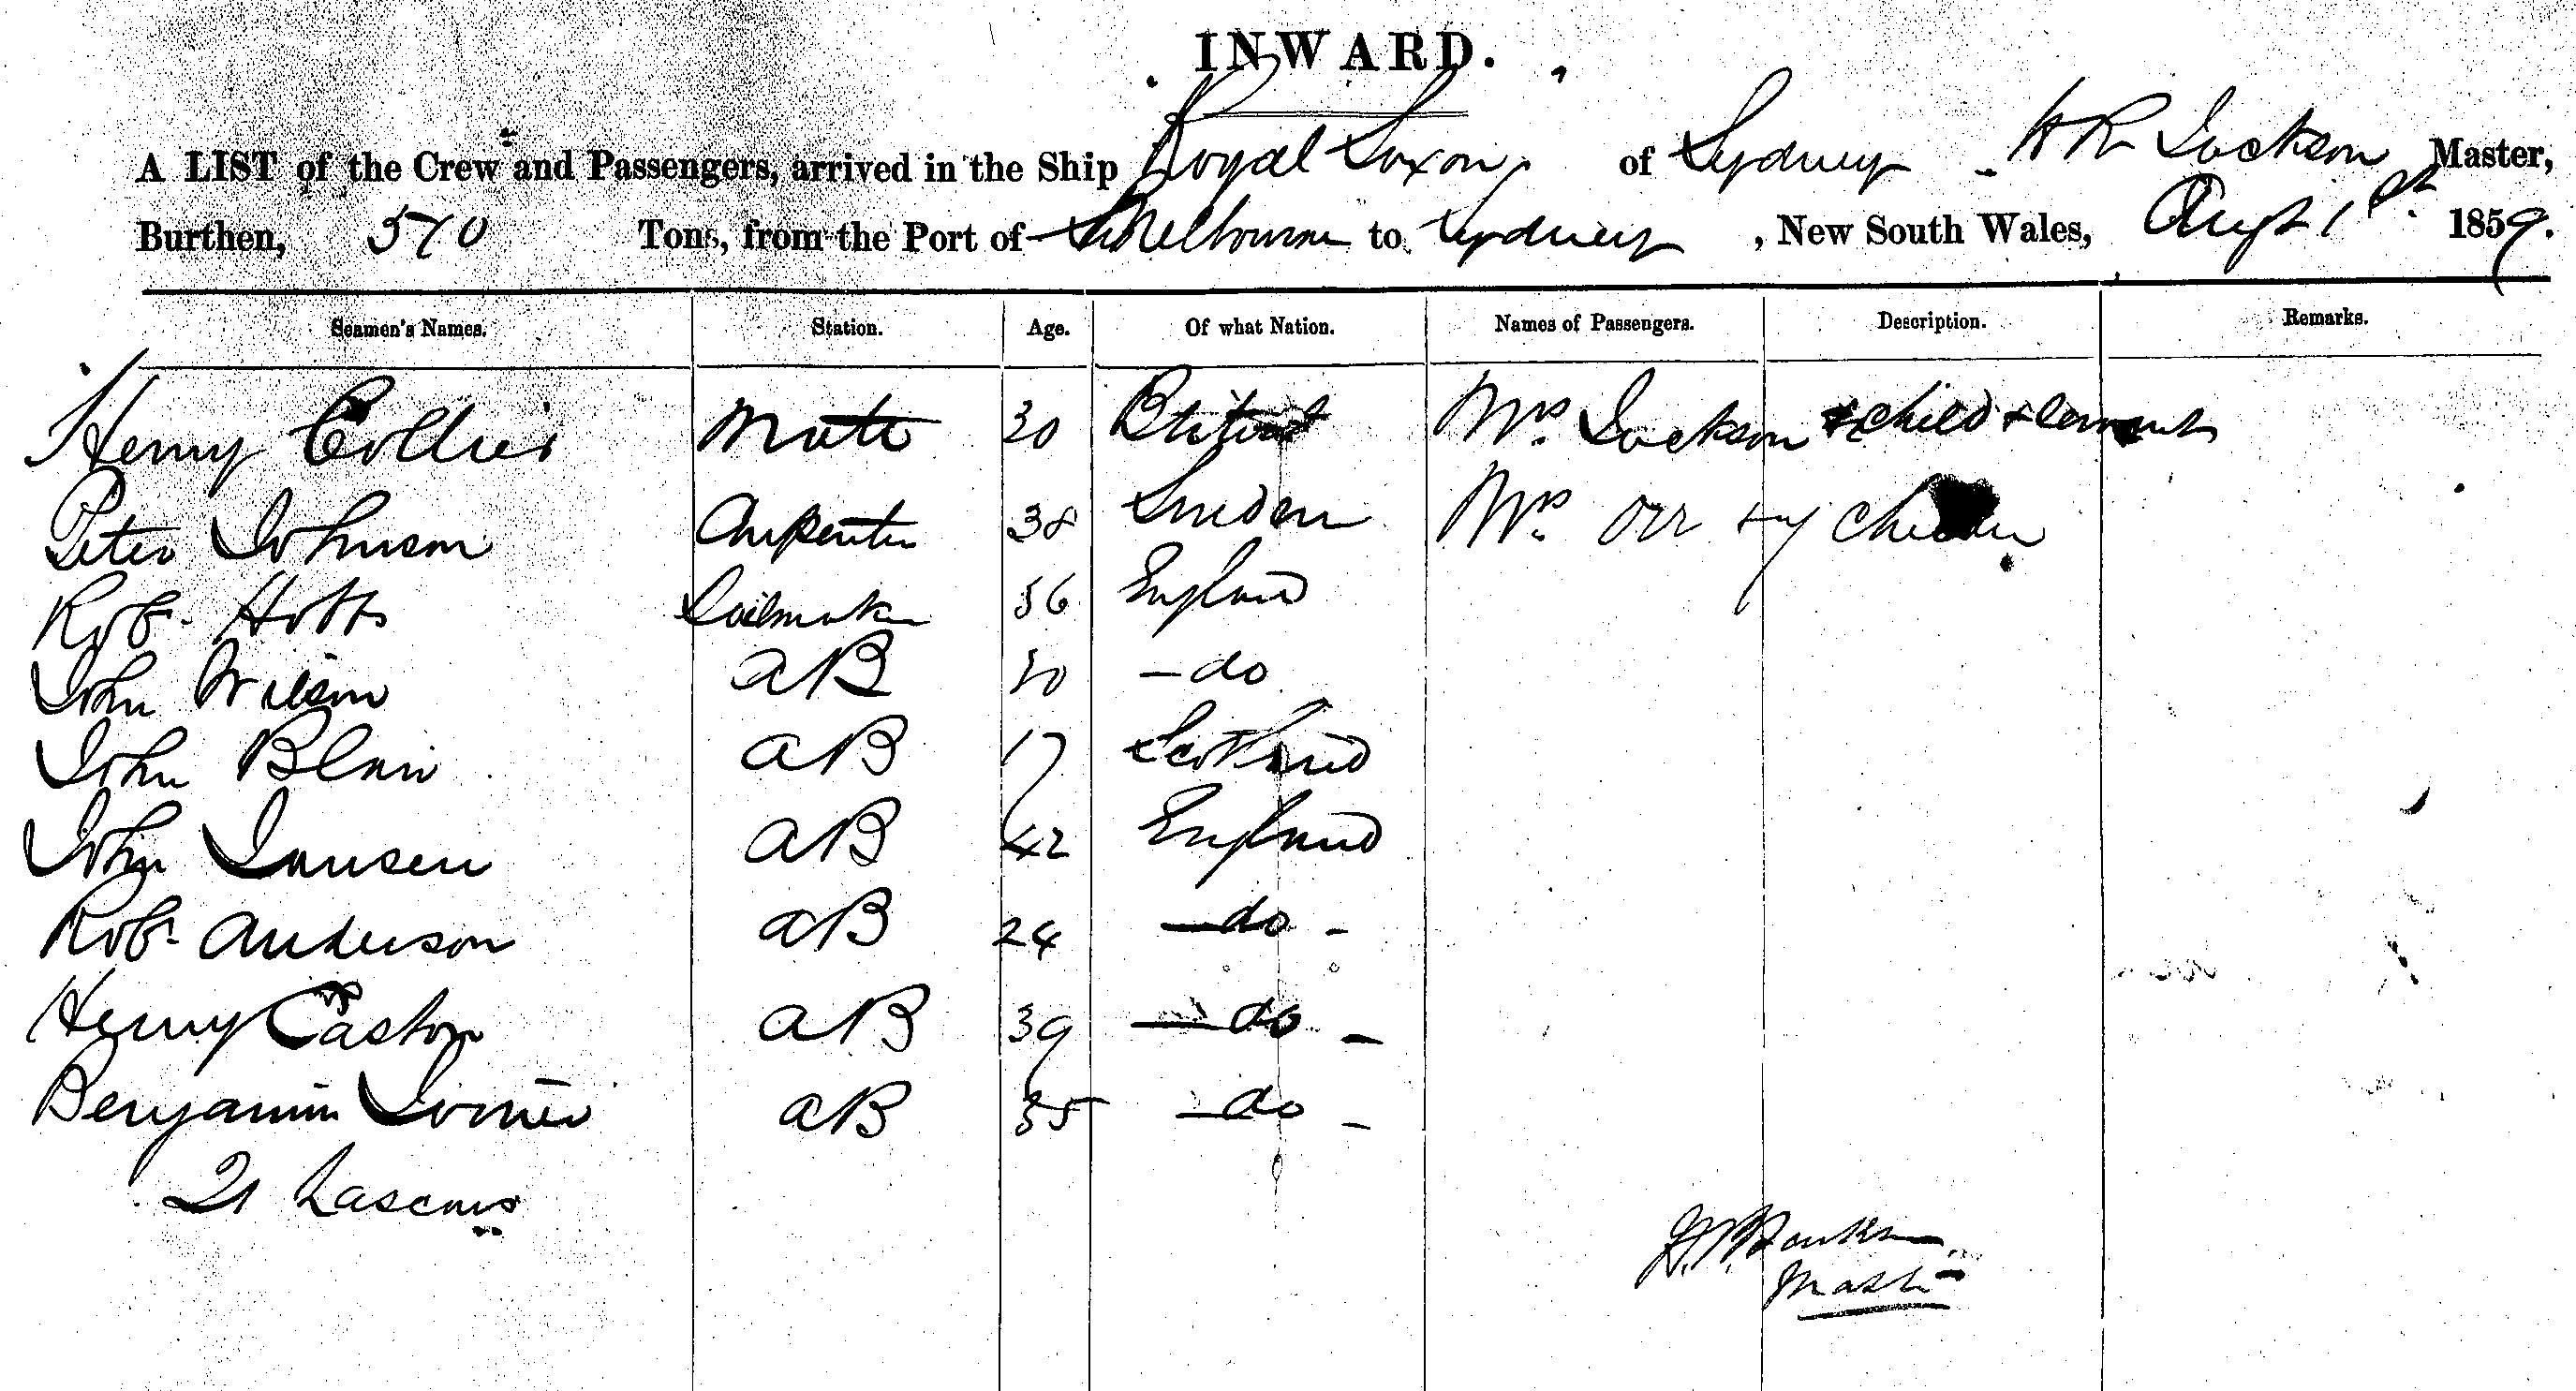 INWARD.
A LIST of the Crew and Passengers, arrived in the Ship Royal Saxon of Sydney H R Jackson Master,
Burthen, 570 Tons, from the Port of Melbourne to Sydney, New South Wales, Augt 1st 1859.
Seamen's Names. Station. Age. Of what Nation. Names of Passengers. Description. Remarks.
Henry Collier Mate 30 Mrs. Jackson & child &
Peter Johnson Carpenter 38 Sweden Mrs. Orr
Robt Hobbs Sailmaker 36 England
John Wilson AB 30 - do
John Blair AB 17 Scotland
John Jansen AB 42 England
Robt Anderson AB 24 - do -
Henry Easton AB 39 - do -
Benjamin AB 35 - do -
21 Lascars
H. R. Jackson
Master